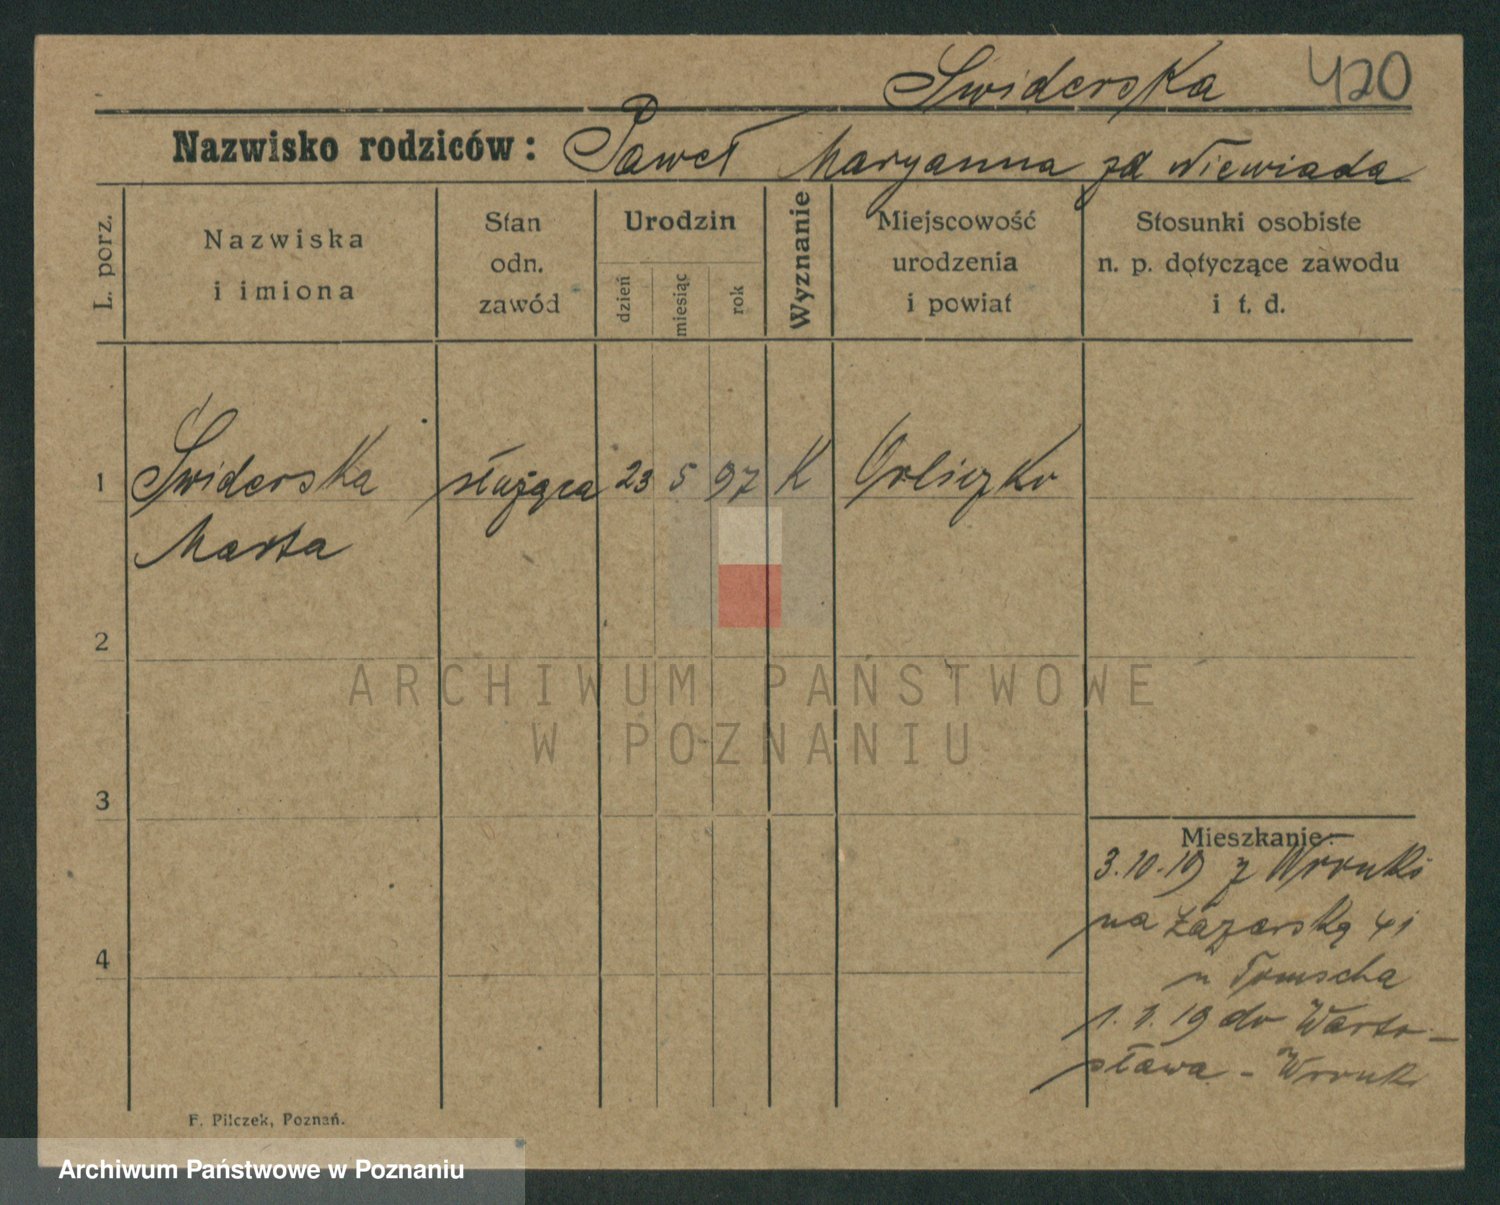 Swiderska 420
Nazwisko rodziców: Paweł Maryanna zd Niewiada
L. porz.
Nazwiska
i imiona
Stan
odn.
zawód
Urodzin
dzień
miesiąc
rok
Wyznanie
Miejscowość
urodzenia
i powiat
Stosunki osobiste
n. p. dotyczące zawodu
i t. d.
1 Świderska służąca 23 5 97 K Orliczko
Marta
ARCHIWUM PAŃSTWOWE
W POZNANIU
2
3
4
Mieszkanie:
3.10.19 z Wronki
na Łazarską 41
u Tomscha
1.1.19 do Warto-
sława - Wronk
F. Pilczek, Poznań.
Archiwum Państwowe w Poznaniu